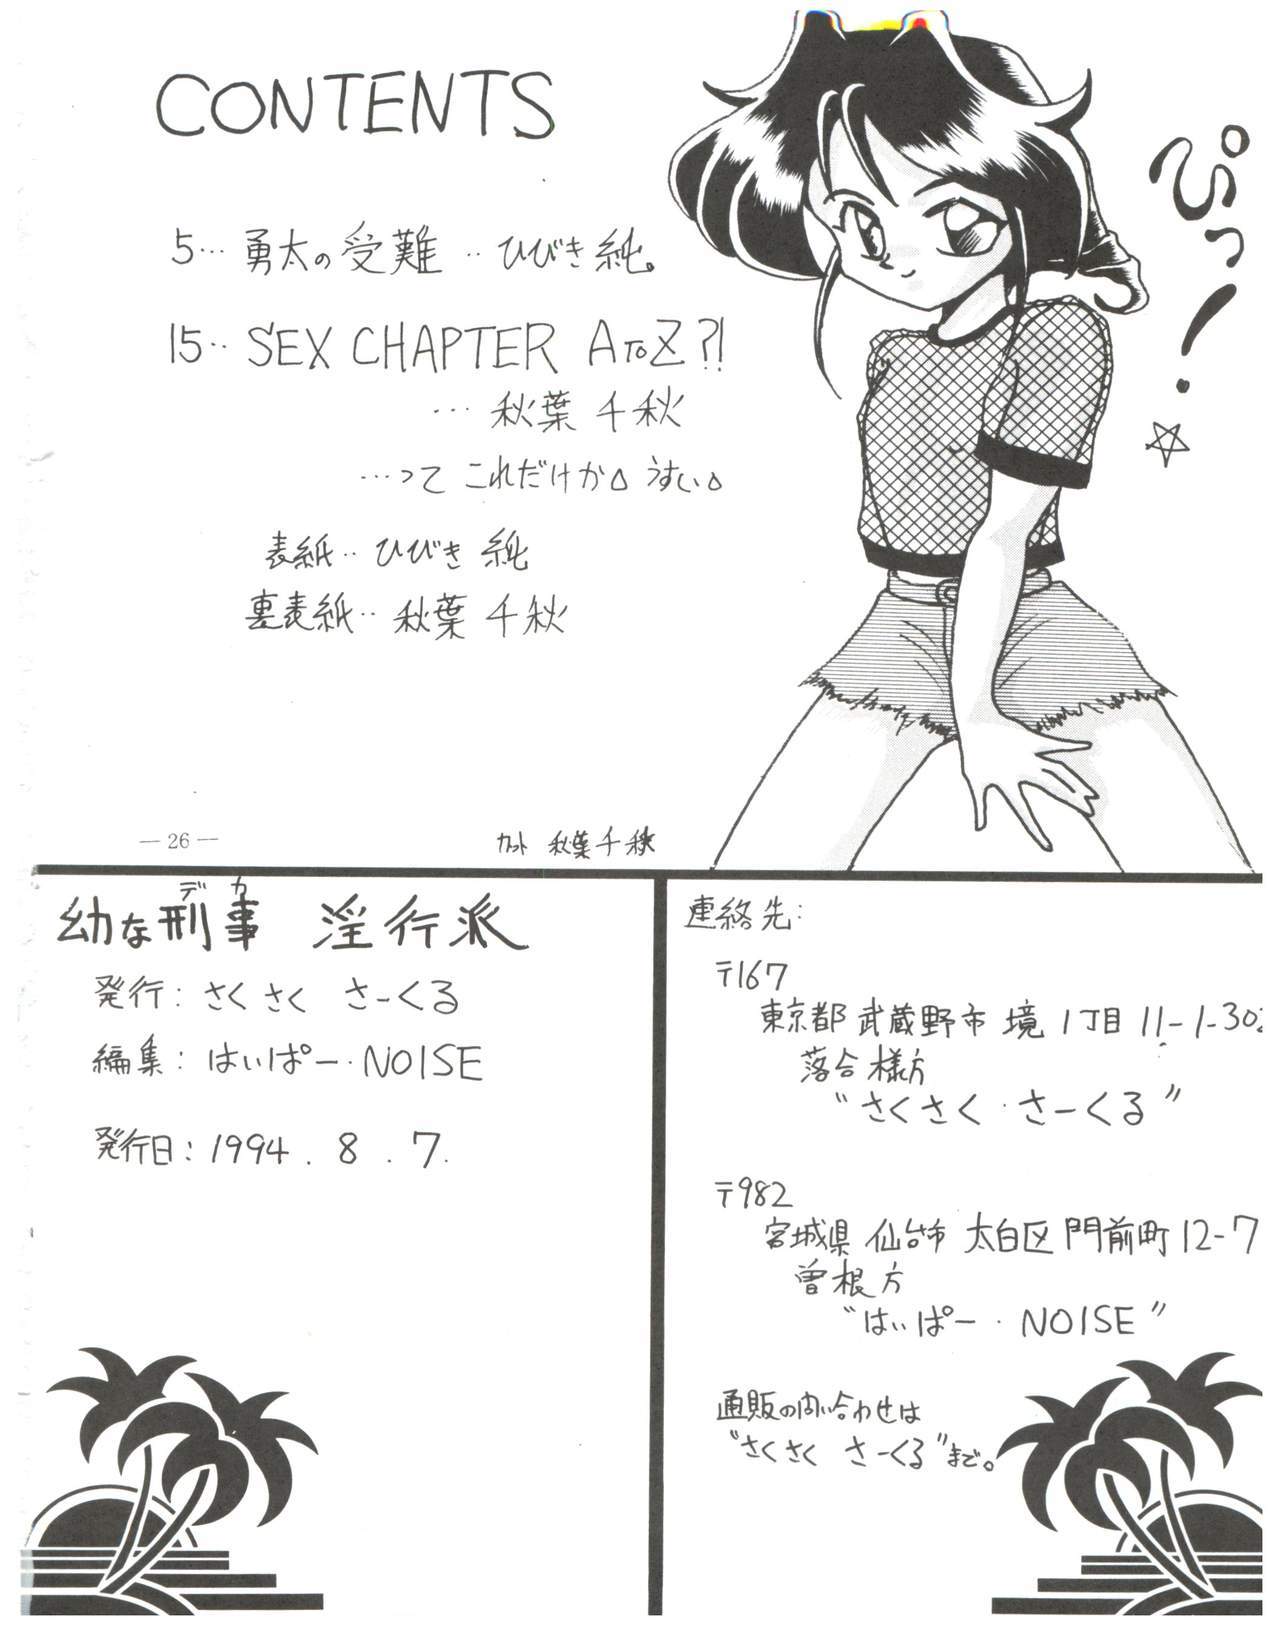 CONTENTS
ぷっ!
5… 勇太の受難 ‥ひびき純。
15‥ SEX CHAPTER A TO Z ?!
… 秋葉 千秋
…って これだけか。うすい。
表紙‥ ひびき 純
裏表紙‥ 秋葉 千秋
— 26 —
カット 秋葉 千秋
デカ
幼な刑事 淫行派
発行: さくさく さーくる
編集: はいぱー・NOISE
発行日: 1994 . 8 . 7.
連絡先:
〒167
東京都 武蔵野市 境 1丁目 11-1-302
落合様方
“さくさく・さーくる”
〒982
宮城県 仙台市 太白区 門前町 12-7
曽根方
“はいぱー・NOISE”
通販の問い合わせは
“さくさく さーくる”まで。